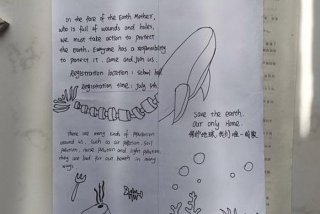 In the face of the Earth Mother,
who is full of wounds and holes,
we must take action to protect
the earth. Everyone has a responsibility
to protect it. Come and join us.
Registration location: school hall
Registration time: July 5th.
There are many kinds of pollution
around us, such as air pollution, soil
pollution, noise pollution and light pollution.
they are bad for our health in many
ways.
Save the earth.
Our only Home.
保护地球,我们唯一的家